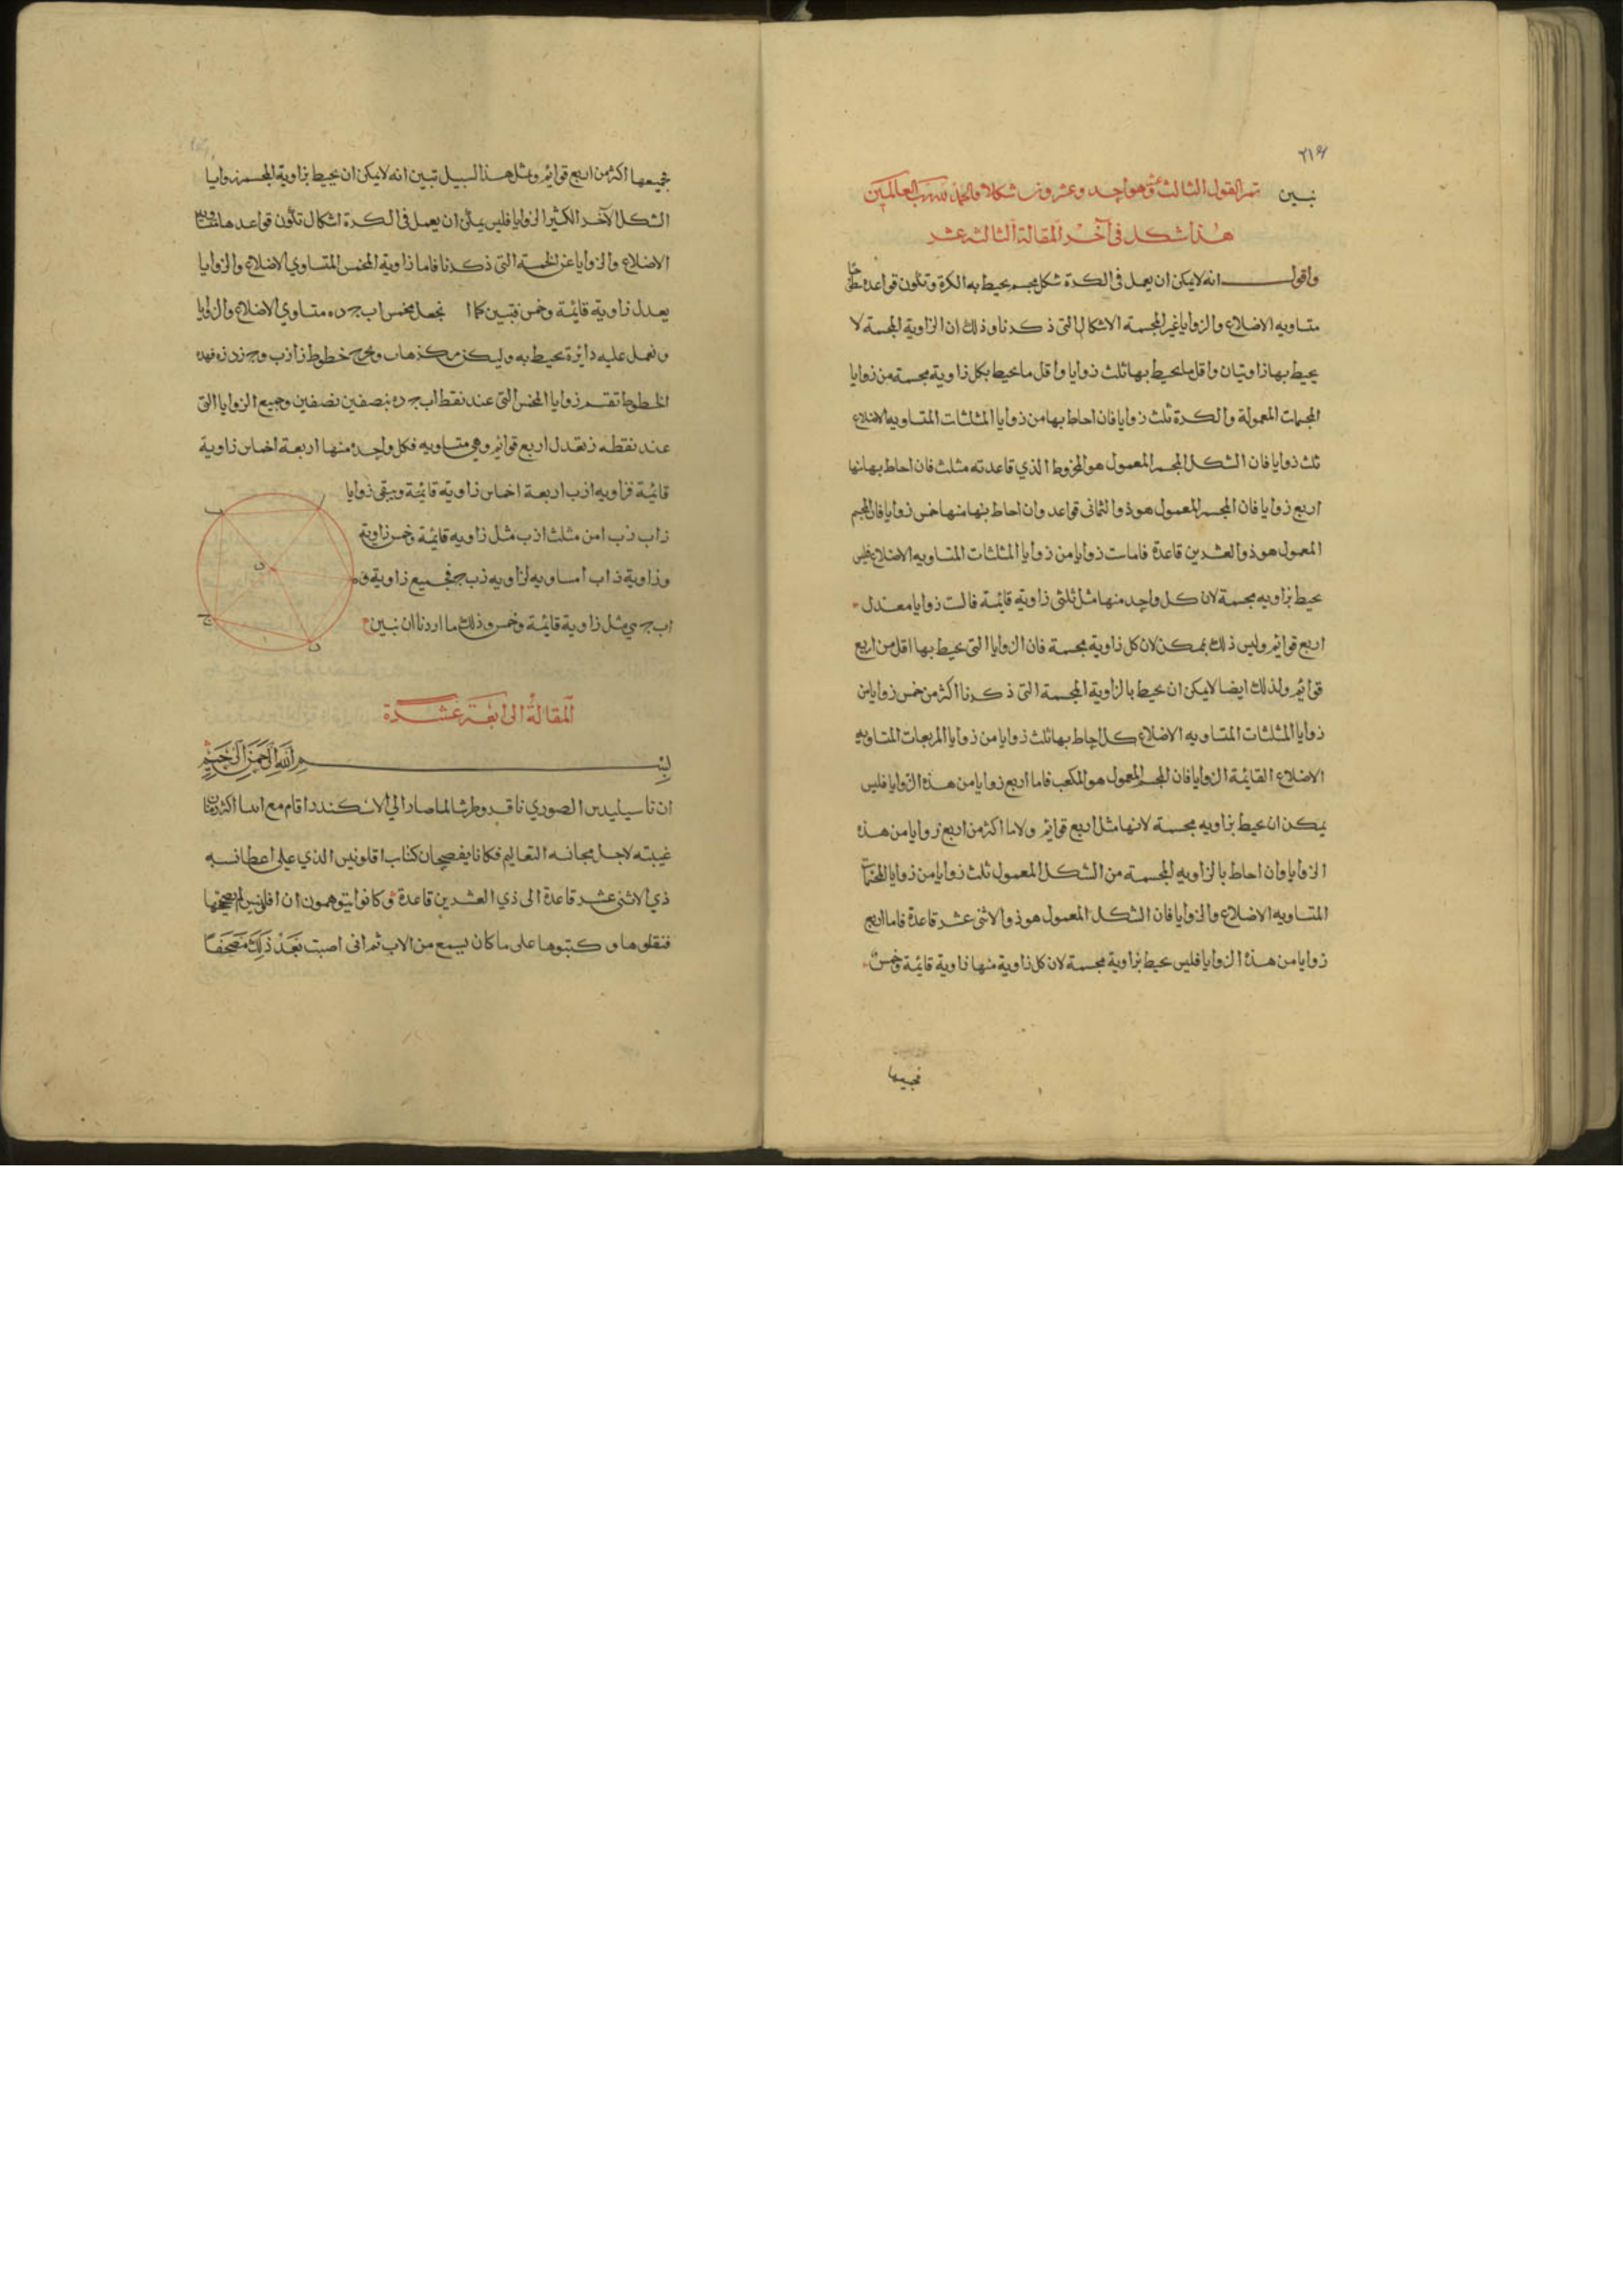 ٢١٤
نبين تم القول الثالث عشر وهو احد وعشرون شكلا والحمد لله رب العالمين
هذا شكل في آخر المقالة الثالثه عشر
واقول انه لا يمكن ان يعمل في الكرة شكل مجسم يحيط به الكرة وتكون قواعده سطوحا
متساويه الاضلاع والزوايا غير المجسمة الاشكال التي ذكرنا وذلك ان الزاوية المجسمة لا
يحيط بها زاويتان واقل ما يحيط بها ثلث زوايا واقل ما يحيط بكل زاوية مجسمة من زوايا
المجسمات المعمولة والكرة ثلث زوايا فان احاط بها من زوايا المثلثات المتساويه الاضلاع
ثلث زوايا فان الشكل المجسم المعمول هو المخروط الذي قاعدته مثلث فان احاط بها منها
اربع زوايا فان المجسم المعمول هو ذو الثماني قواعد وان احاط بها منها خمس زوايا فان المجسم
المعمول هو ذو العشرين قاعدة فاما ست زوايا من زوايا المثلثات المتساويه الاضلاع فليس
يحيط بزاويه مجسمة لان كل واحد منها مثل ثلثي زاوية قائمة فالست زوايا معتدل
اربع قوائم وليس ذلك بممكن لان كل زاوية مجسمة فان الزوايا التي يحيط بها اقل من اربع
قوائم ولذلك ايضا لا يمكن ان يحيط بالزاوية المجسمة التي ذكرنا اكثر من خمس زوايا من
زوايا المثلثات المتساويه الاضلاع كل احاط بها ثلث زوايا من زوايا المربعات المتساويه
الاضلاع القائمة الزوايا فان المجسم المعمول هو المكعب فاما اربع زوايا من هذه الزوايا فليس
يمكن ان يحيط بزاويه مجسمة لانها مثل اربع قوائم ولا ما اكثر من اربع زوايا من هذه
الزوايا وان احاط بالزاويه المجسمة من الشكل المعمول ثلث زوايا من زوايا المخمسات
المتساويه الاضلاع والزوايا فان الشكل المعمول هو ذو الاثنى عشر قاعدة فاما اربع
زوايا من هذه الزوايا فليس يحيط بزاوية مجسمة لان كل زاوية منها زاوية قائمة وخمس
فجميعها
فجميعها اكثر من اربع قوائم وبمثل هذا السبيل تبين انه لا يمكن ان يحيط بزاوية المجسم زوايا
الشكل الآخر الكثير الزوايا فليس يمكن ان يعمل في الكرة اشكال تكون قواعدها متساوية
الاضلاع والزوايا عن الخمسة التي ذكرنا فاما زاوية المخمس المتساوي الاضلاع والزوايا
يعدل زاوية قائمة وخمس فتبين كما نجعل مخمس اب جـ ده متساوي الاضلاع والزوايا
ونعمل عليه دائرة يحيط به وليكن مركزها ونخرج خطوط زا زب وجـ زد زه فهذه
الخطوط تقسم زوايا المخمس التي عند نقط اب جـ ده بنصفين نصفين وجميع الزوايا التي
عند نقطه ز تعدل اربع قوائم وهي متساويه فكل واحده منها اربعة اخماس زاوية
قائمة فزاويه ازب اربعة اخماس زاوية قائمة ويبقى زوايا
زاب زب ا من مثلث ازب مثل زاويه قائمة وخمس زاوية
وزاوية زاب ا مساويه لزاويه زب جـ فجميع زاوية
اب جـ مثل زاوية قائمة وخمس وذلك ما اردنا ان نبين
ب
ا
ه
ز
جـ
د
المقالة الرابعة عشرة
بسم الله الرحمن الرحيم
ان باسيليدس الصوري لما صار الى الاسكندر اقام مع ابينا اكثر زمان
غيبته لاجل مجانسة التعاليم فكانا يفصحان كتاب افلونيس الذي على اعطا نسبه
ذي الاثنى عشر قاعدة الى ذي العشرين قاعدة وكانوا يتوهمون ان افلونيس لم يصححها
فنقلوها وكتبوها على ما كان يسمع من الاب ثم انى اصبت بعد ذلك مصحفا